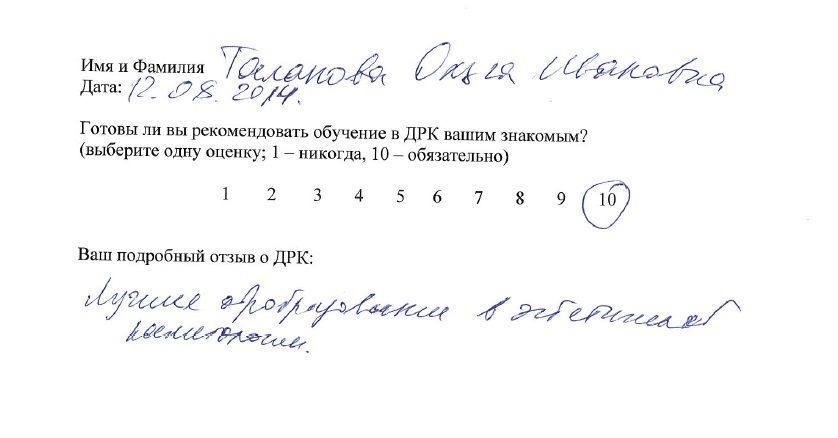 Имя и Фамилия Таланова Ольга Ивановна
Дата: 12.08.2014.
Готовы ли вы рекомендовать обучение в ДРК вашим знакомым?
(выберите одну оценку; 1 – никогда, 10 – обязательно)
1 2 3 4 5 6 7 8 9 10
Ваш подробный отзыв о ДРК:
Лучшее в эстетической